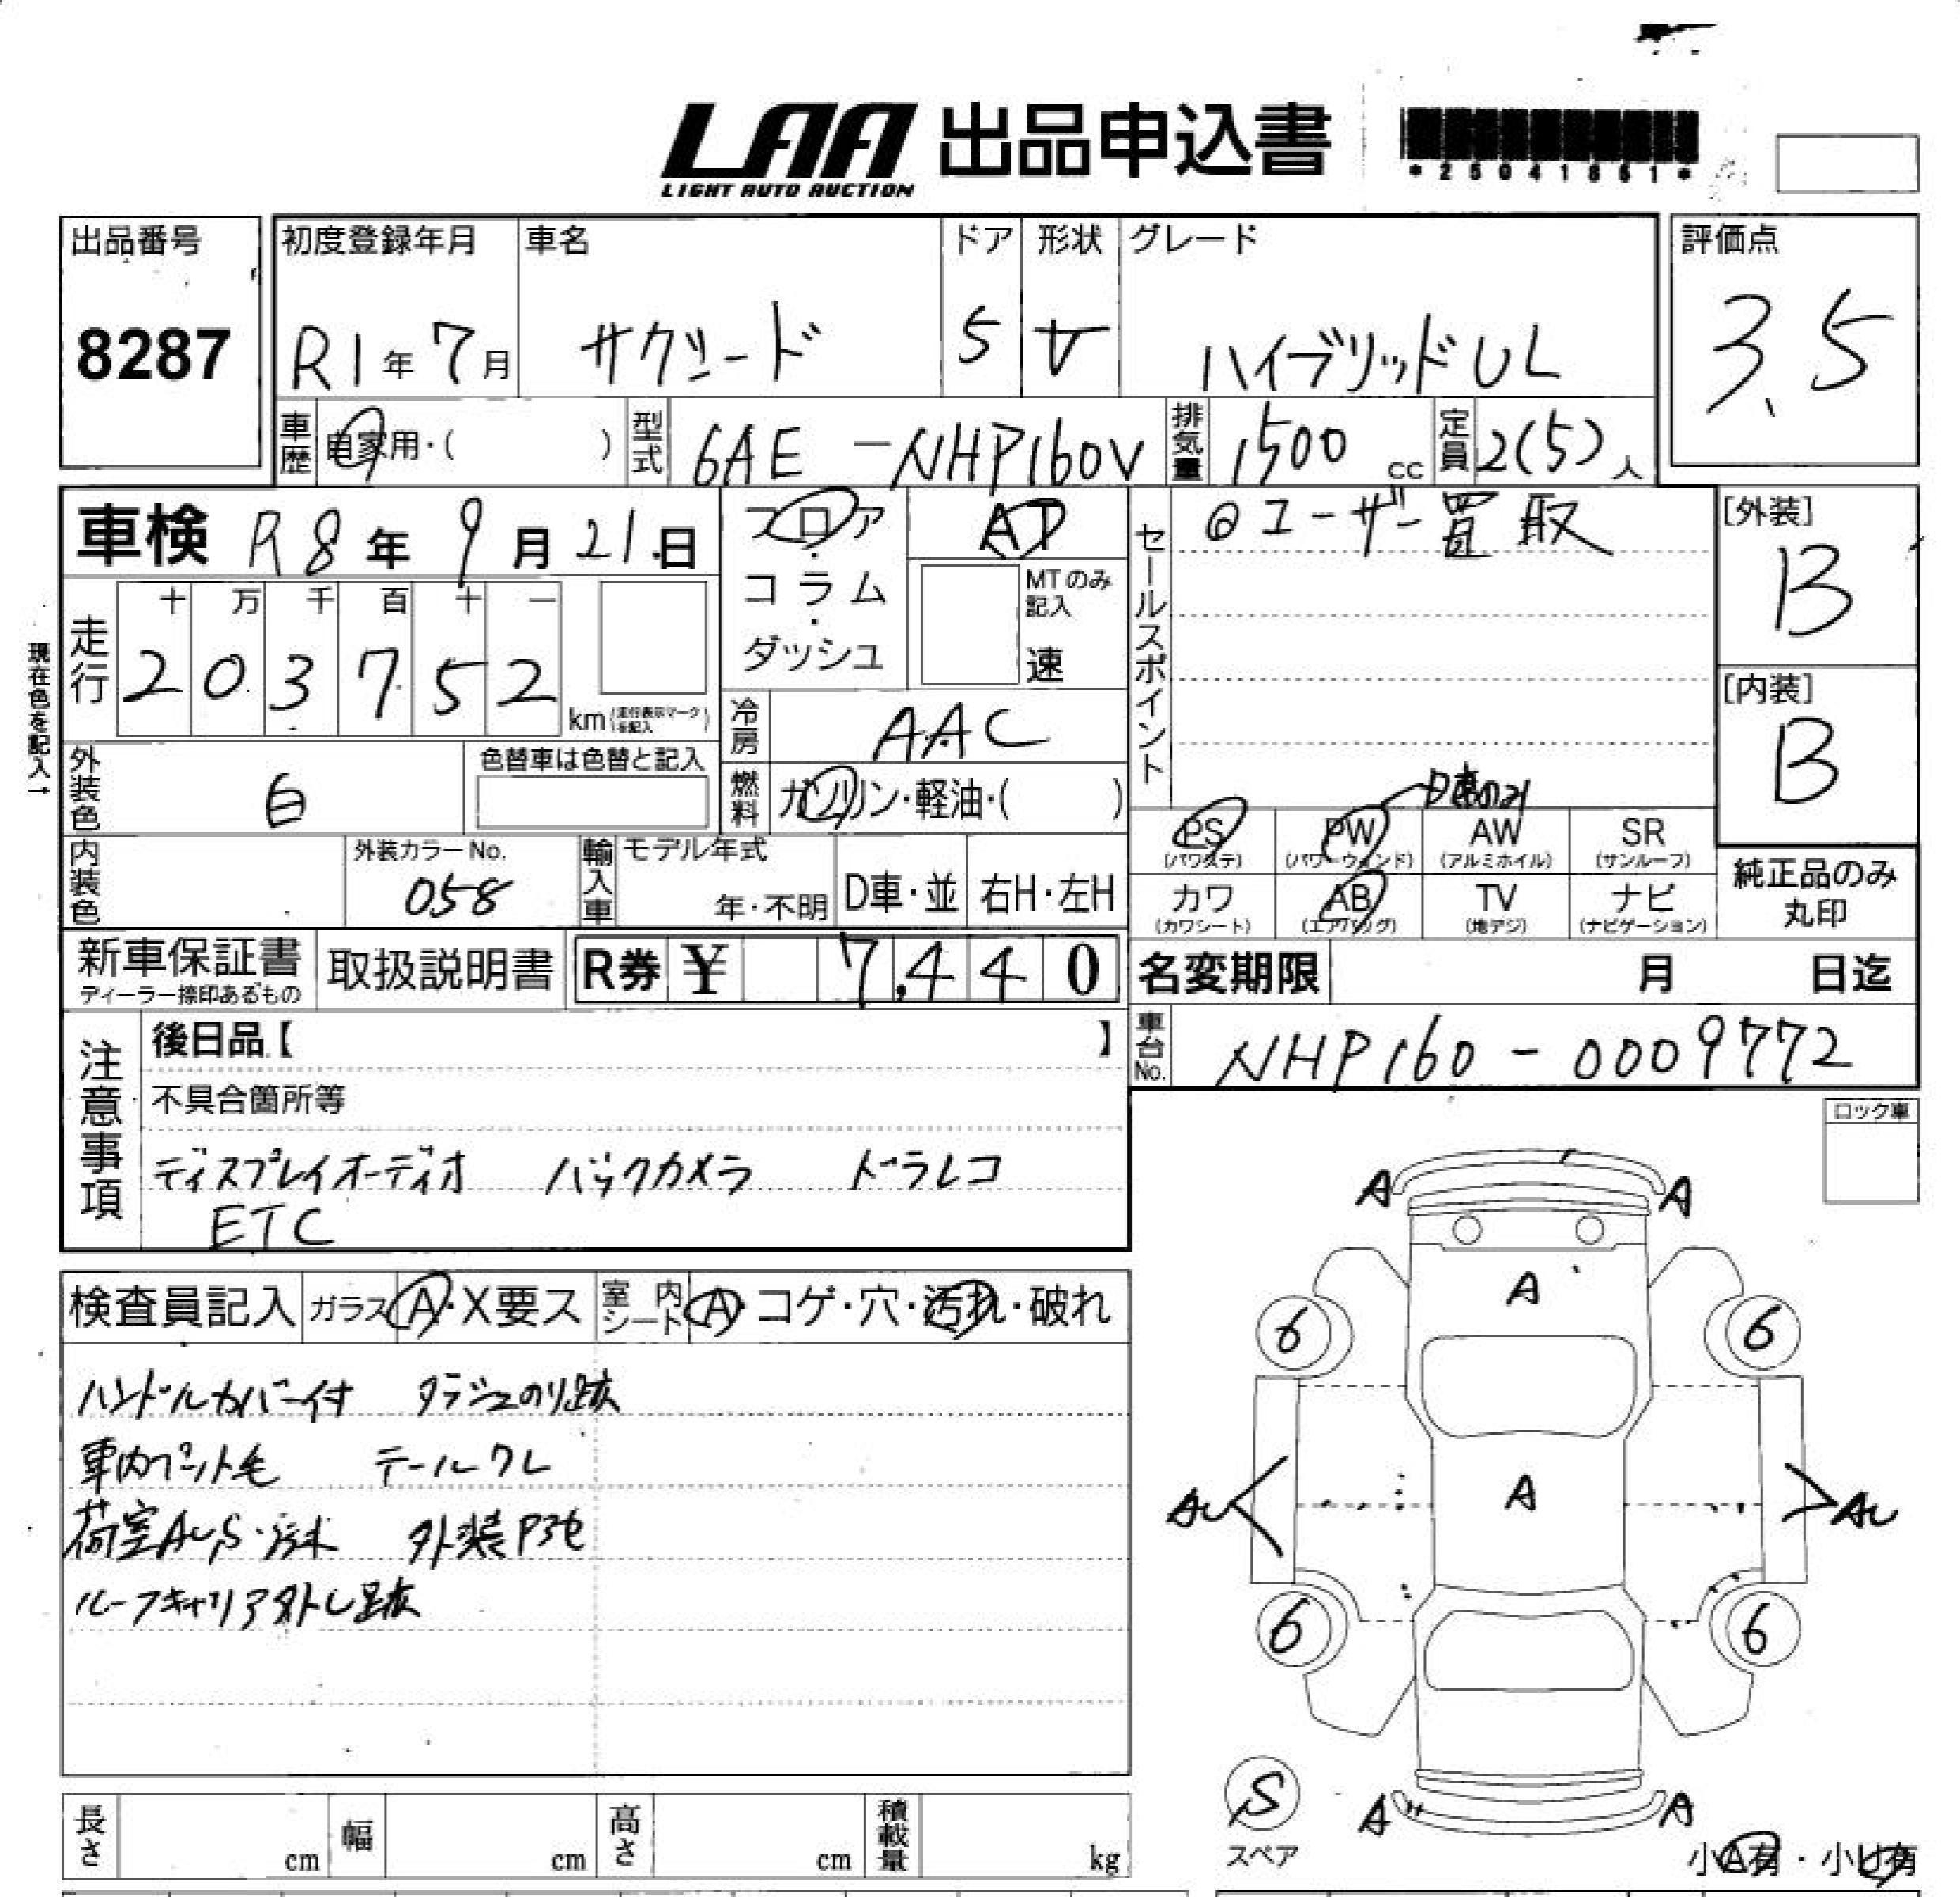 LAA 出品申込書
LIGHT AUTO AUCTION
*25041861*
出品番号
8287
初度登録年月
R1年7月
車名
サクシード
ドア
5
形状
V
グレード
ハイブリッドUL
評価点
3.5
車歴
自家用・( )
型式
6AE-NHP160V
排気量
1500 cc
定員
2(5)人
車検 R8年9月21日
フロア・コラム・ダッシュ
AT
MTのみ記入
速
セールスポイント
◎ユーザー買取
[外装]
B
[内装]
B
現在色を記入→
走行
十 万 千 百 十 一
2 0 3 7 5 2
km(走行表示マークを記入)
冷房
AAC
外装色
白
色替車は色替と記入
燃料
ガソリン・軽油・( )
内装色
外装カラーNo.
058
輸入車
モデル年式
年・不明
D車・並
右H・左H
PS (パワステ)
PW (パワーウィンド)
AW (アルミホイル)
SR (サンルーフ)
カワ (カワシート)
AB (エアバッグ)
TV (地デジ)
ナビ (ナビゲーション)
純正品のみ丸印
新車保証書
ディーラー捺印あるもの
取扱説明書
R券 ¥ 7,440
名変期限 月 日迄
注意事項
後日品【 】
不具合箇所等
ディスプレイオーディオ バックカメラ ドラレコ
ETC
車台No.
NHP160-0009772
ロック車
検査員記入
ガラス A・X要ス
室内シート A・コゲ・穴・汚れ・破れ
ハンドルカバー付 ダッシュのり跡
車内ペット毛 テールワレ
荷室AU,S・汚れ
ルーフキャリア外し跡
A A
A
6 6
A
AU AU
6 6
S
スペア
A A
小A有・小U有
長さ cm
幅 cm
高さ cm
積載量 kg